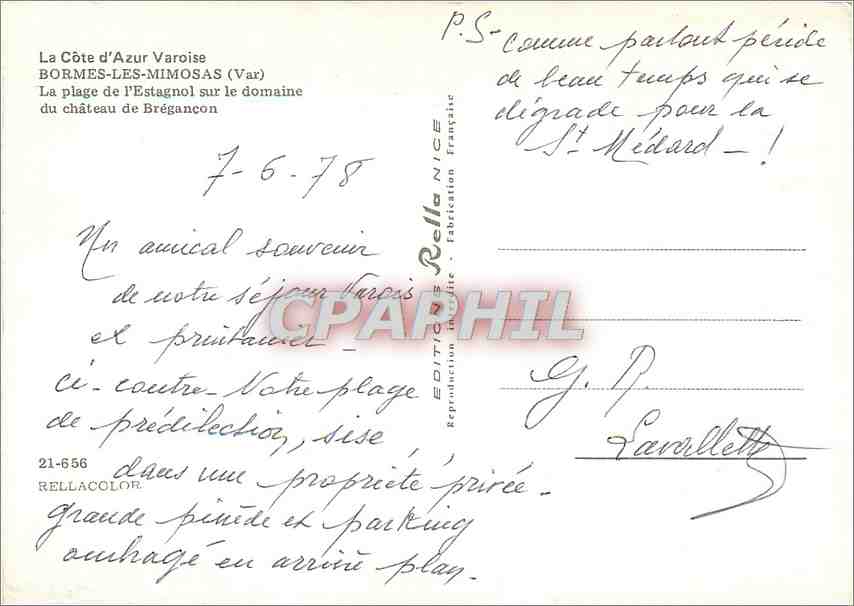 La Côte d'Azur Varoise
BORMES-LES-MIMOSAS (Var)
La plage de l'Estagnol sur le domaine
du château de Brégançon
7-6-78
Un amical souvenir
de notre séjour Varois
et printanier -
ci-contre - Notre plage
de prédilection, sise
dans une propriété privée -
grande pinède et parking
ombragé en arrière plan.
21-656
RELLACOLOR
EDITIONS Rella NICE
Reproduction interdite - Fabrication Française
P.S - Comme partout période
de beau temps qui se
dégrade pour la
St Médard - !
G. R.
Lavallette
CPAPHIL